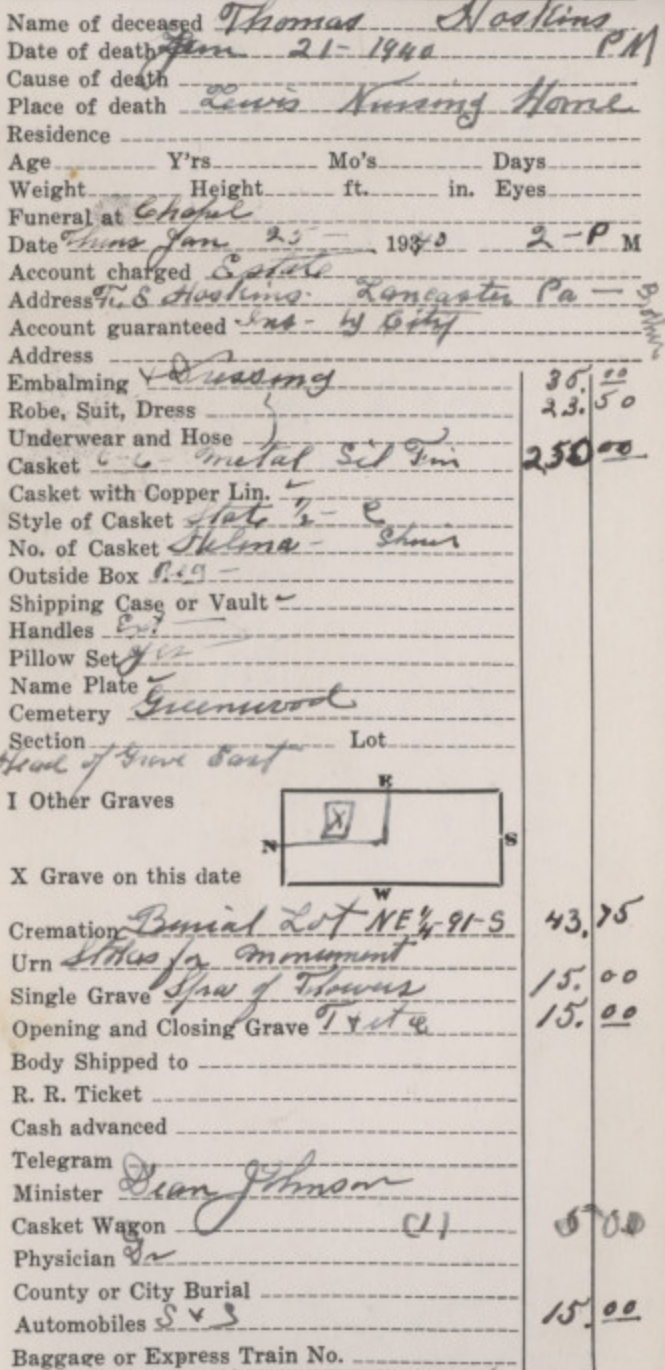 Name of deceased Thomas Hoskins
Date of death Jan 21 - 1940 PM
Cause of death
Place of death Lewis Nursing Home
Residence
Age Y'rs Mo's Days
Weight Height ft. in. Eyes
Funeral at Chapel
Date Thurs Jan 25 - 1940 2 - P M
Account charged Estate
Address F. S Hoskins Lancaster Pa - Brother
Account guaranteed Ins - by City
Address
Embalming & Dressing 35.00
Robe, Suit, Dress 23.50
Underwear and Hose
Casket 6-6 metal Sil Fin 250 00
Casket with Copper Lin.
Style of Casket State 1/2 - C
No. of Casket Selma -
Outside Box Reg -
Shipping Case or Vault
Handles Ext
Pillow Set yes
Name Plate
Cemetery Greenwood
Section Lot
Head of Grave East
I Other Graves
E
N X S
X Grave on this date
W
Cremation Burial Lot NE 1/4 - 91 - S 43.75
Urn Stakes for monument
Single Grave Spray of Flowers 15.00
Opening and Closing Grave 15.00
Body Shipped to
R. R. Ticket
Cash advanced
Telegram
Minister Dean Johnson
Casket Wagon (1) 5 00
Physician Dr
County or City Burial
Automobiles S & S 15.00
Baggage or Express Train No.